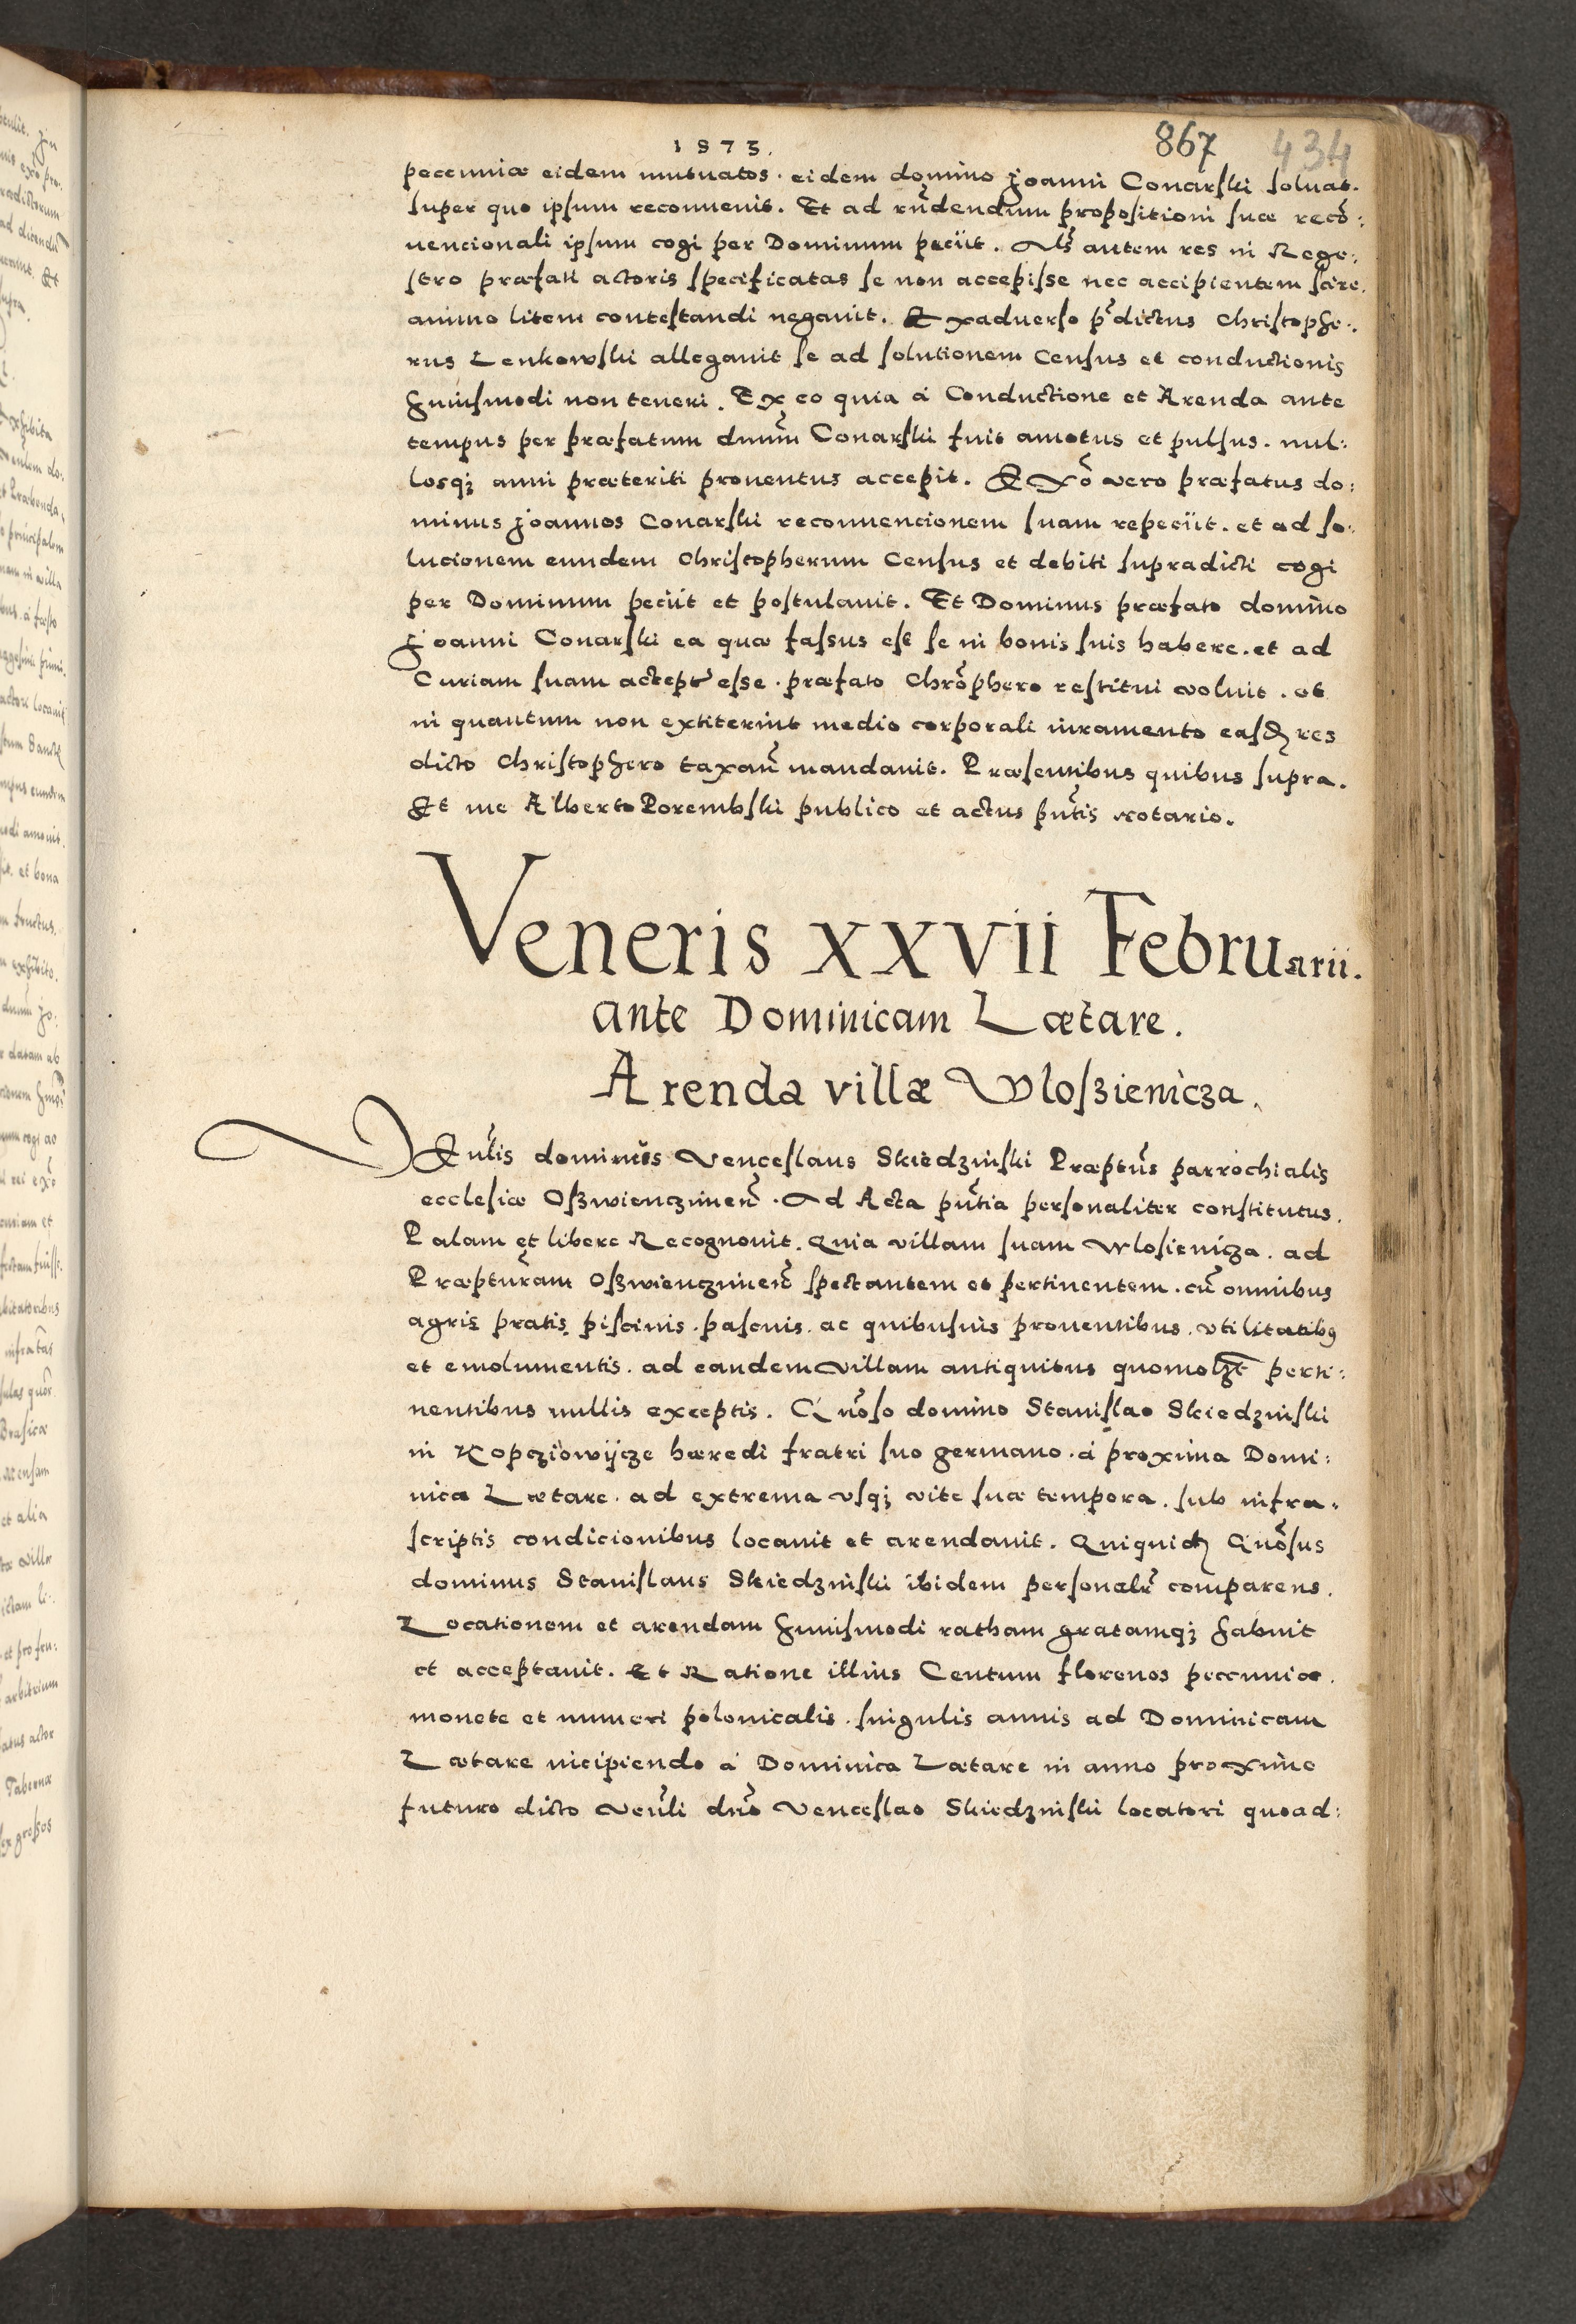 1573.
867 434
pecuniæ eidem mutuatos. eidem domino Joanni Conarski soluat.
super quo ipsum reconuenit. Et ad rñdendum propositioni suæ recõ:
uencionali ipsum cogi per Dominum peciit. Als autem res in Rege:
stro præfati actoris specificatas se non accepisse nec accipientem scire.
animo litem contestandi negauit. Exaduerso p̃dictus Christophe:
rus Lenkowski allegauit se ad solutionem census et conductionis
huiusmodi non teneri. Ex eo quia á Conductione et Arenda ante
tempus per præfatum dnum̃ Conarski fuit amotus et pulsus. nul:
losq; anni præteriti prouentus accepit. Exõ vero præfatus do:
minus Joannes Conarski reconuencionem suam repeciit. et ad so:
lucionem eundem Christopherum Census et debiti supradicti cogi
per Dominum peciit et postulauit. Et Dominus præfato domino
Joanni Conarski ea quæ fassus est se in bonis suis habere. et ad
Curiam suam accept̃ esse. præfato Chrõphero restitui voluit. et
in quantum non extiterint medio corporali iuramento easd res
dicto Christophero taxari mandauit. Præsentibus quibus supra.
Et me Alberto Porembski publico et actus pñtis notario.
Veneris XXVII Februarii.
ante Dominicam Lætare.
Arenda villæ Wloszienicza.
Veñlis dominus Venceslaus Skiedzinski Præptũs parrochialis
ecclesiæ Oszwienczimeñ. Ad Acta pñtia personaliter constitutus.
Palam et libere Recognouit. Quia villam suam Wlosienicza. ad
Præpturam Oszwienczimeñ spectantem et pertinentem. cũ omnibus
agris pratis piscinis. pascuis. ac quibusuis prouentibus. vtilitatibꝯ
et emolumentis. ad eandem villam antiquitus quomolꝫt perti:
nentibus nullis exceptis. Gñoso domino Stanislao Skiedzinski
in Kopcziowijcze hæredi fratri suo germano. á proxima Domi:
nica Lætare. ad extrema vsq; vite suæ tempora. sub infra:
scriptis condicionibus locauit et arendauit. Quiquid Gñosus
dominus Stanislaus Skiedzinski ibidem personalr̃ comparens.
Locationem et arendam huiusmodi ratham gratamq; habuit
et acceptauit. Et Ratione illius Centum florenos peccuniæ.
monete et numeri polonicalis. singulis annis ad Dominicam
Lætare incipiendo á Dominica Lætare in anno proximo
futuro dicto Veñli dño Venceslao Skiedzinski locatori quoad: